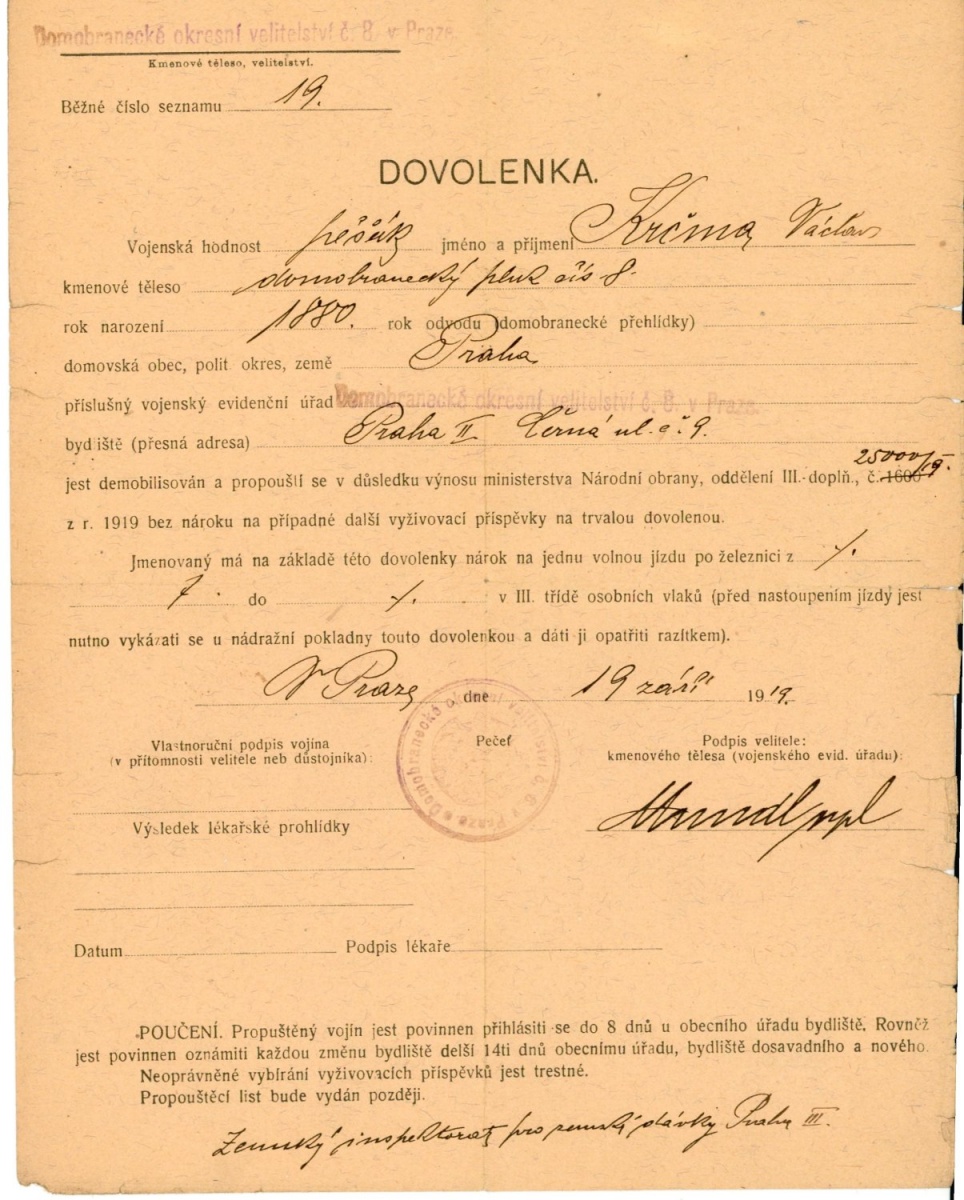 Domobranecké okresní velitelství č. 8. v Praze.
Kmenové těleso, velitelství.
Běžné číslo seznamu 19.
DOVOLENKA.
Vojenská hodnost pěšák jméno a příjmení Krčma Václav
kmenové těleso domobranecký pluk čís 8.
rok narození 1880. rok odvodu (domobranecké přehlídky)
domovská obec, polit. okres, země Praha
příslušný vojenský evidenční úřad Domobranecké okresní velitelství č. 8. v Praze.
bydliště (přesná adresa) Praha II Černá ul. č. 9.
25000/19.
jest demobilisován a propouští se v důsledku výnosu ministerstva Národní obrany, oddělení III.-doplň., č. 1600
z r. 1919 bez nároku na případné další vyživovací příspěvky na trvalou dovolenou.
Jmenovaný má na základě této dovolenky nárok na jednu volnou jízdu po železnici z
do v III. třídě osobních vlaků (před nastoupením jízdy jest
nutno vykázati se u nádražní pokladny touto dovolenkou a dáti ji opatřiti razítkem).
V Praze dne 19 září 1919.
Vlastnoruční podpis vojína Pečeť Podpis velitele:
(v přítomnosti velitele neb důstojníka): kmenového tělesa (vojenského evid. úřadu):
Domobranecké okresní velitelství č. 8 v Praze
Výsledek lékařské prohlídky
Datum Podpis lékaře
POUČENÍ. Propuštěný vojín jest povinnen přihlásiti se do 8 dnů u obecního úřadu bydliště. Rovněž
jest povinnen oznámiti každou změnu bydliště delší 14ti dnů obecnímu úřadu, bydliště dosavadního a nového.
Neoprávněné vybírání vyživovacích příspěvků jest trestné.
Propouštěcí list bude vydán později.
Zemský inspektorat pro zemské dávky Praha III.